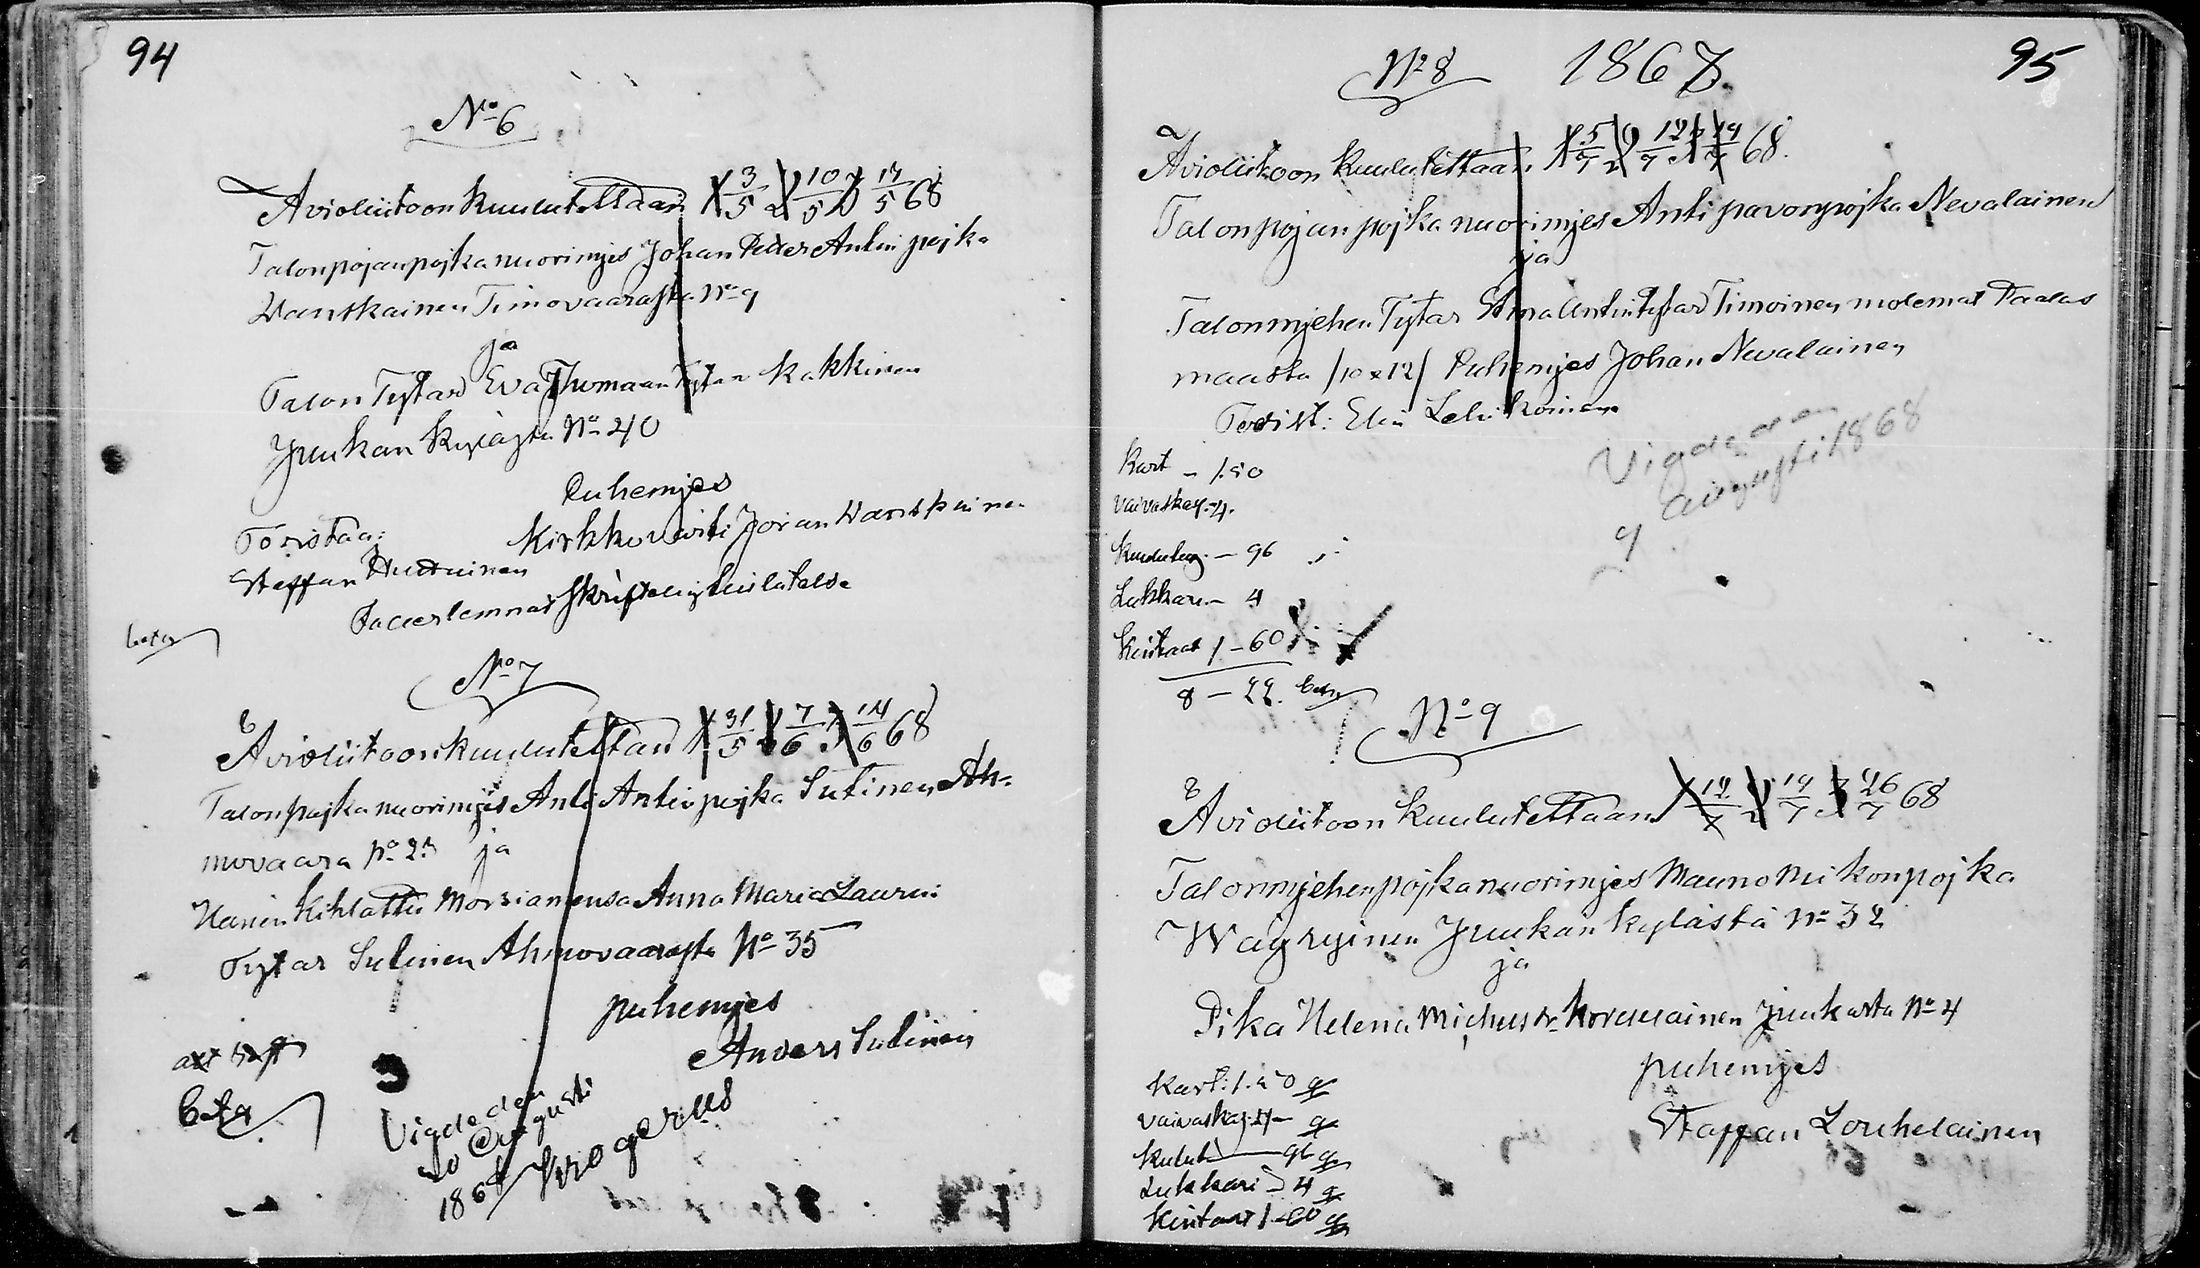 94
No 6
Avioliitoon kuulutettaan 1 3/5 2 10/5 3 17/5 68
Talonpojanpojka nuorimjes Johan Petter Antin pojka
Wantkainen Timovaarasta No 9
ja
Talon Tytar Eva Thomaan Tytar Kakkinen
Juukan Kylästa No 40
Puhemjes
Toristaa: Kirkkovärti Johan Wantkainen
Steffan Huttuinen
Fader lemnar skriftelig tillåtelse
beta
No 7
Avioliitoon kuulutettan 1 31/5 2 7/6 3 14/6 68
Talonpojka nuorimjes Anti Antin pojka Sutinen Ah-
movaara No 23 ja
Hänen Kihlattu Morsiamensa Anna Maria Laurin
Tytar Sutinen Ahmovaarasta No 35
puhemjes
Anders Sutinen
beta
Vigde den
20 Augusti
1868 Krogerus
No 8 1868. 95
Avioliitoon kuulutettaan 1 5/7 2 12/7 3 19/7 68.
Talonpojan pojka nuorimjes Anti pavon pojka Nevalainen
ja
Talonmjehen Tytar Stina Antin tytar Timoinen molemat Paalas
maasta /10 & 12/ Puhemjes Johan Nevalainen
Todist: Elia Lehikoinen
Kart – 1.50
Vaivaskas. 4.
Kuulutus – 96
Lukkari – 4
Kintaat 1 – 60
8 – 22. beta
Vigde den
9 Augusti 1868
No 9
Avioliitoon kuulutettaan 1 12/7 2 19/7 3 26/7 68
Talonmjehen pojka nuorimjes Mauno Mikonpojka
Wäyryinen Juukan kylästä No 32
ja
Pika Helena Michelsdr Juukasta No 4
puhemjes
Staffan Louhelainen
Kart: 1.50
Vaivaskas. 4 –
Kulut – 96
Lukkari – 4
Kintaat 1 – 60